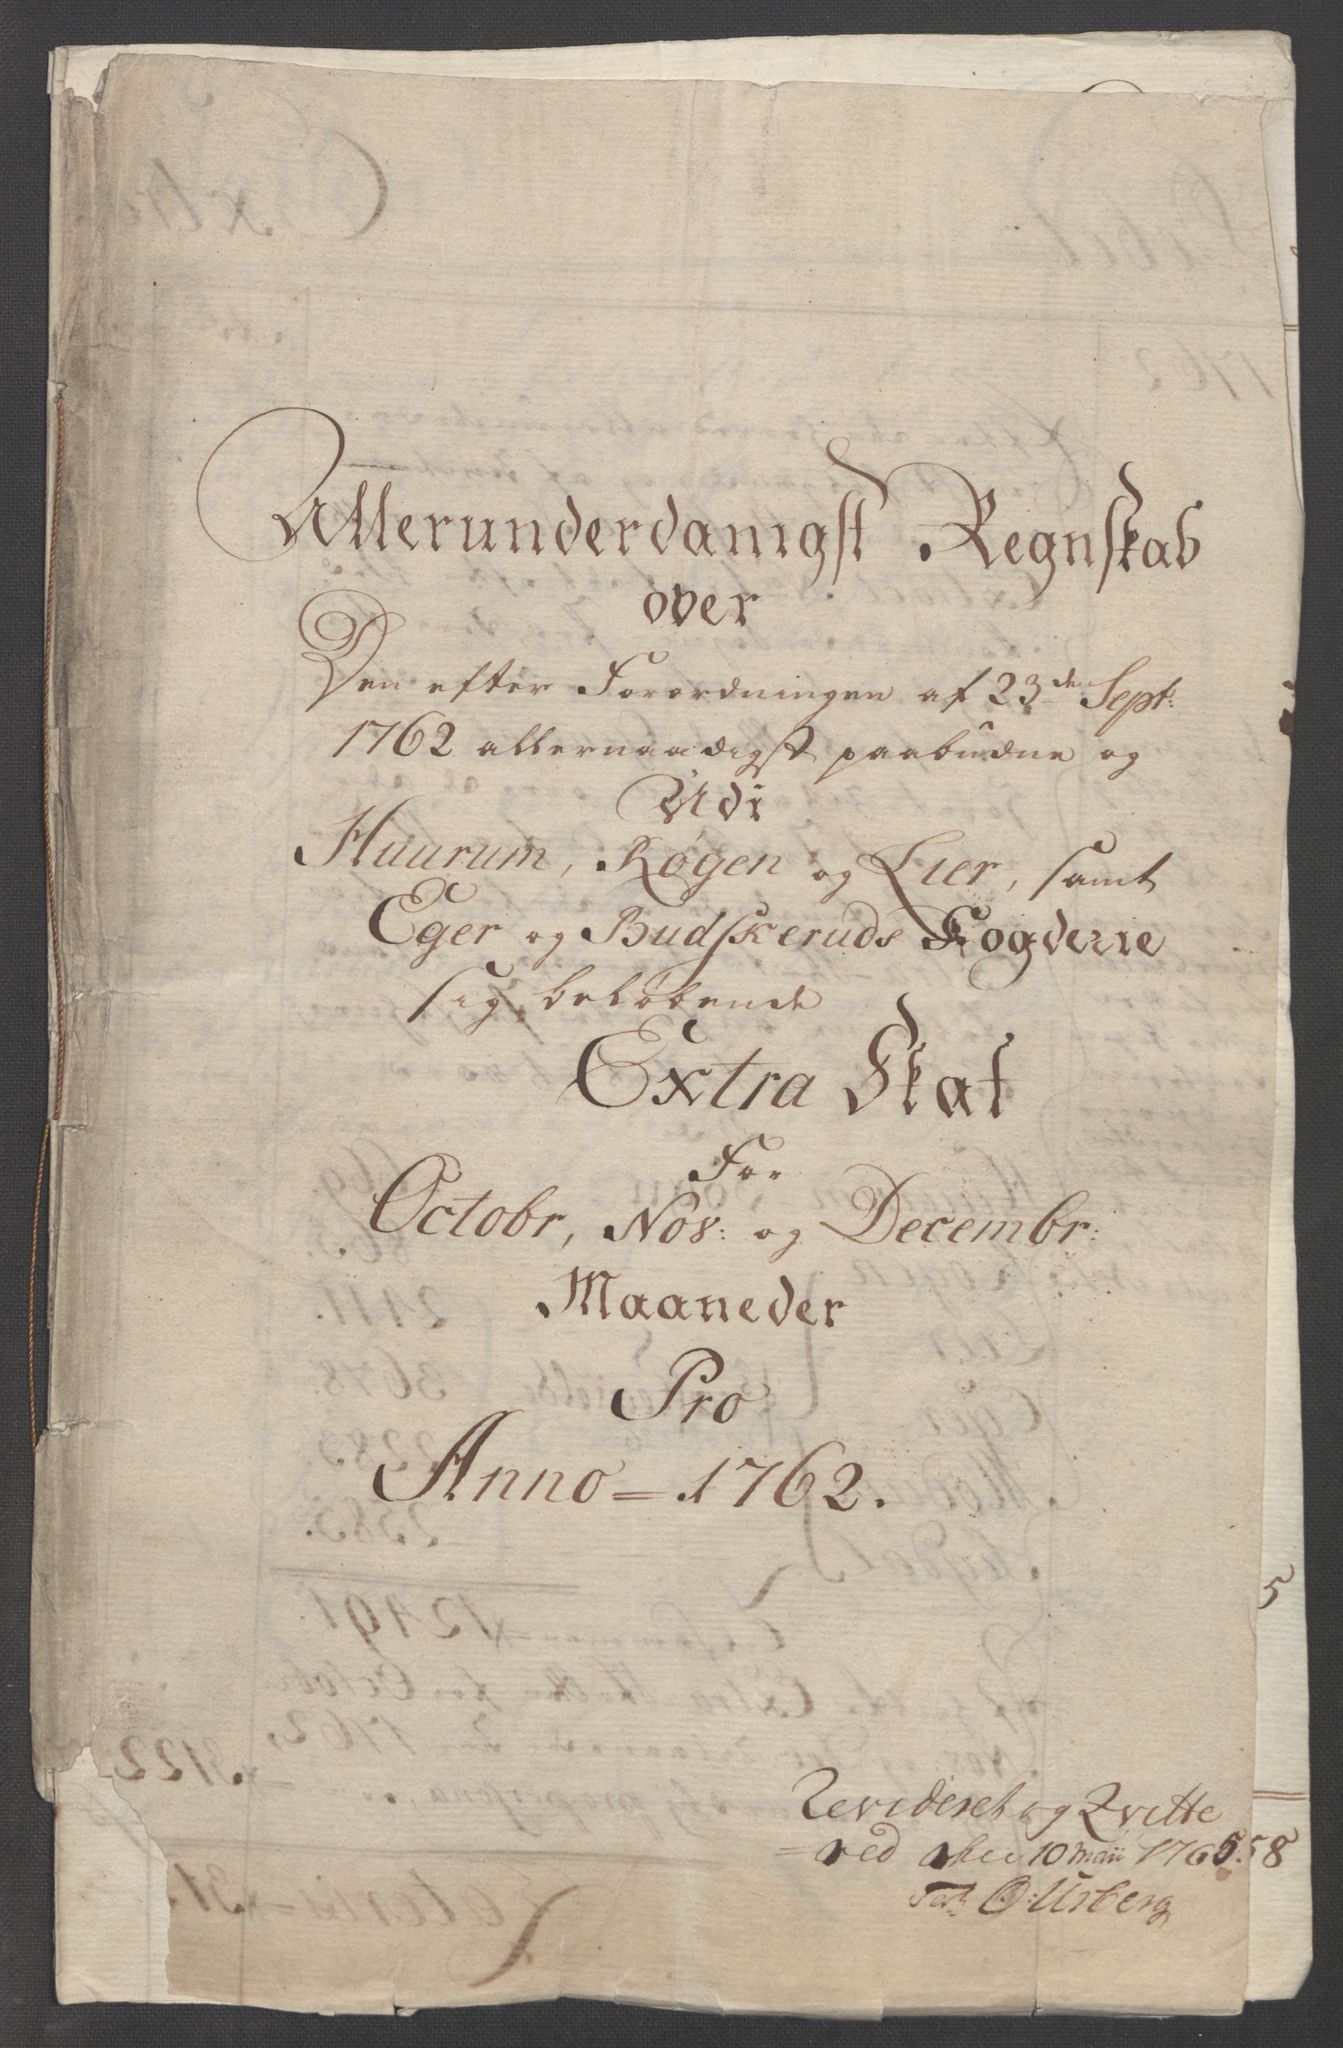 Allerunderdanigst Regnskab
over
Den efter Forordningen af 23de Sept:
1762 allernaadigst paabudne og
Udi
Huurum, Røgen og Lier, samt
Eger og Budskeruds Fogderie
sig beløbende
Extra Skat
For
Octobr, Nov: og Decembr:
Maaneder
Pro
Anno = 1762.
Revideret og Qvitte
=red den 10 Maii 1765.
58
5